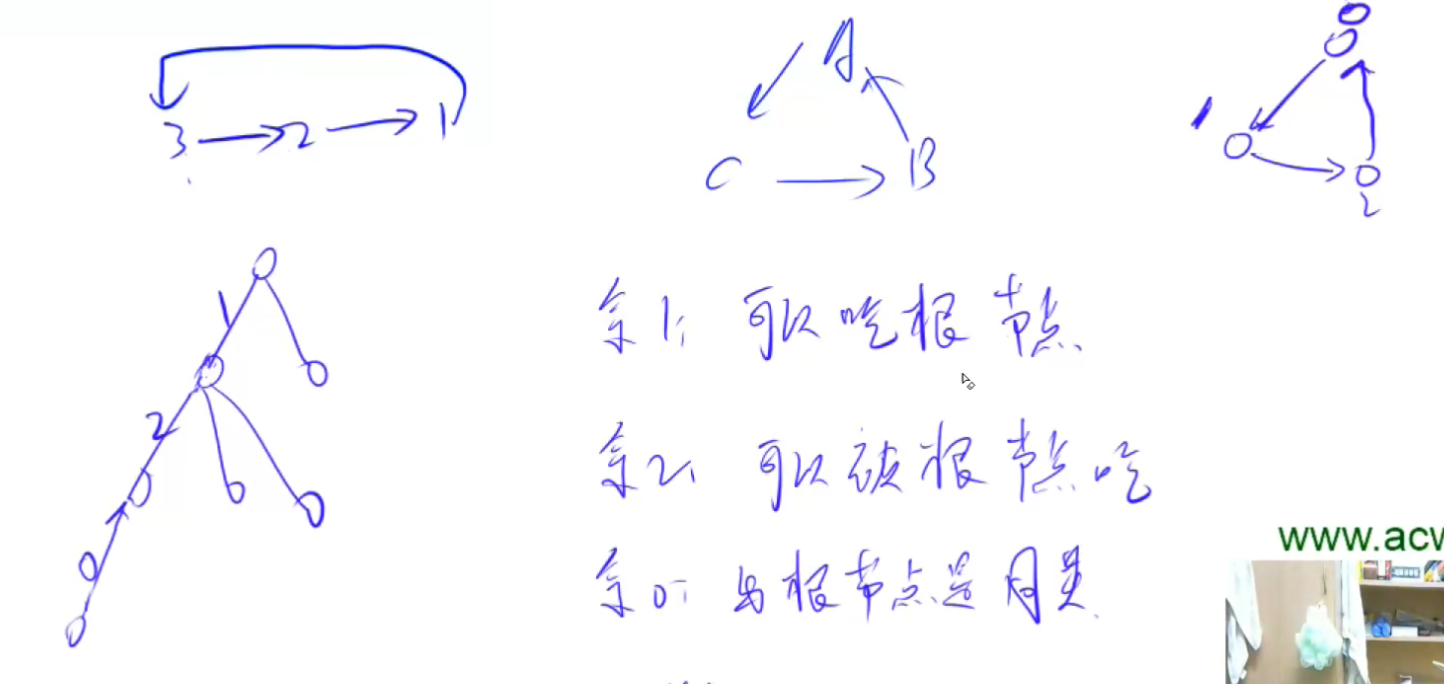 3 → 2 → 1
A
C → B
0
1
2
1
2
0
余1: 可以吃根节点
余2: 可以被根节点吃
余0: 与根节点是同类.
www.acw